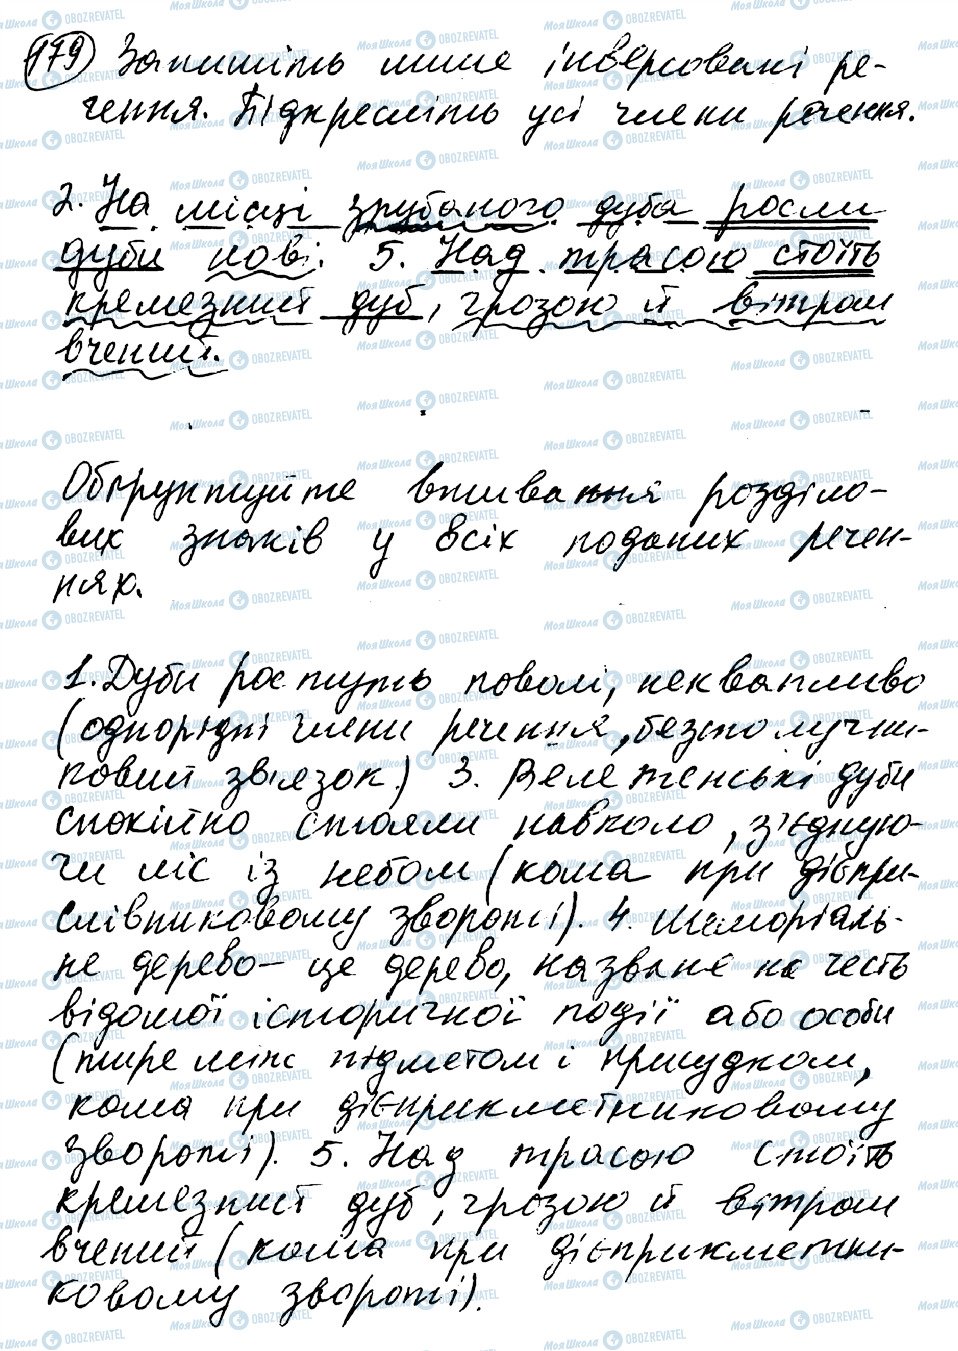 179 Запишіть лише інверсовані ре-
чення. Підкресліть усі члени речення.
2. На місці зрубаного дуба росли
дуби нові. 5. Над трасою стоїть
кремезний дуб, грозою й вітром
вчений.
Обґрунтуйте вживання розділо-
вих знаків у всіх поданих речен-
нях.
1. Дуби ростуть поволі, неквапливо
(однорідні члени речення, безсполучни-
ковий зв'язок.) 3. Велетенські дуби
спокійно стояли навколо, з'єдную-
чи ліс із небом (кома при дієпри-
слівниковому звороті). 4. Меморіаль-
не дерево - це дерево, назване на честь
відомої історичної події або особи
(тире між підметом і присудком,
кома при дієприкметниковому
звороті). 5. Над трасою стоїть
кремезний дуб, грозою й вітром
вчений (кома при дієприкметни-
ковому звороті).